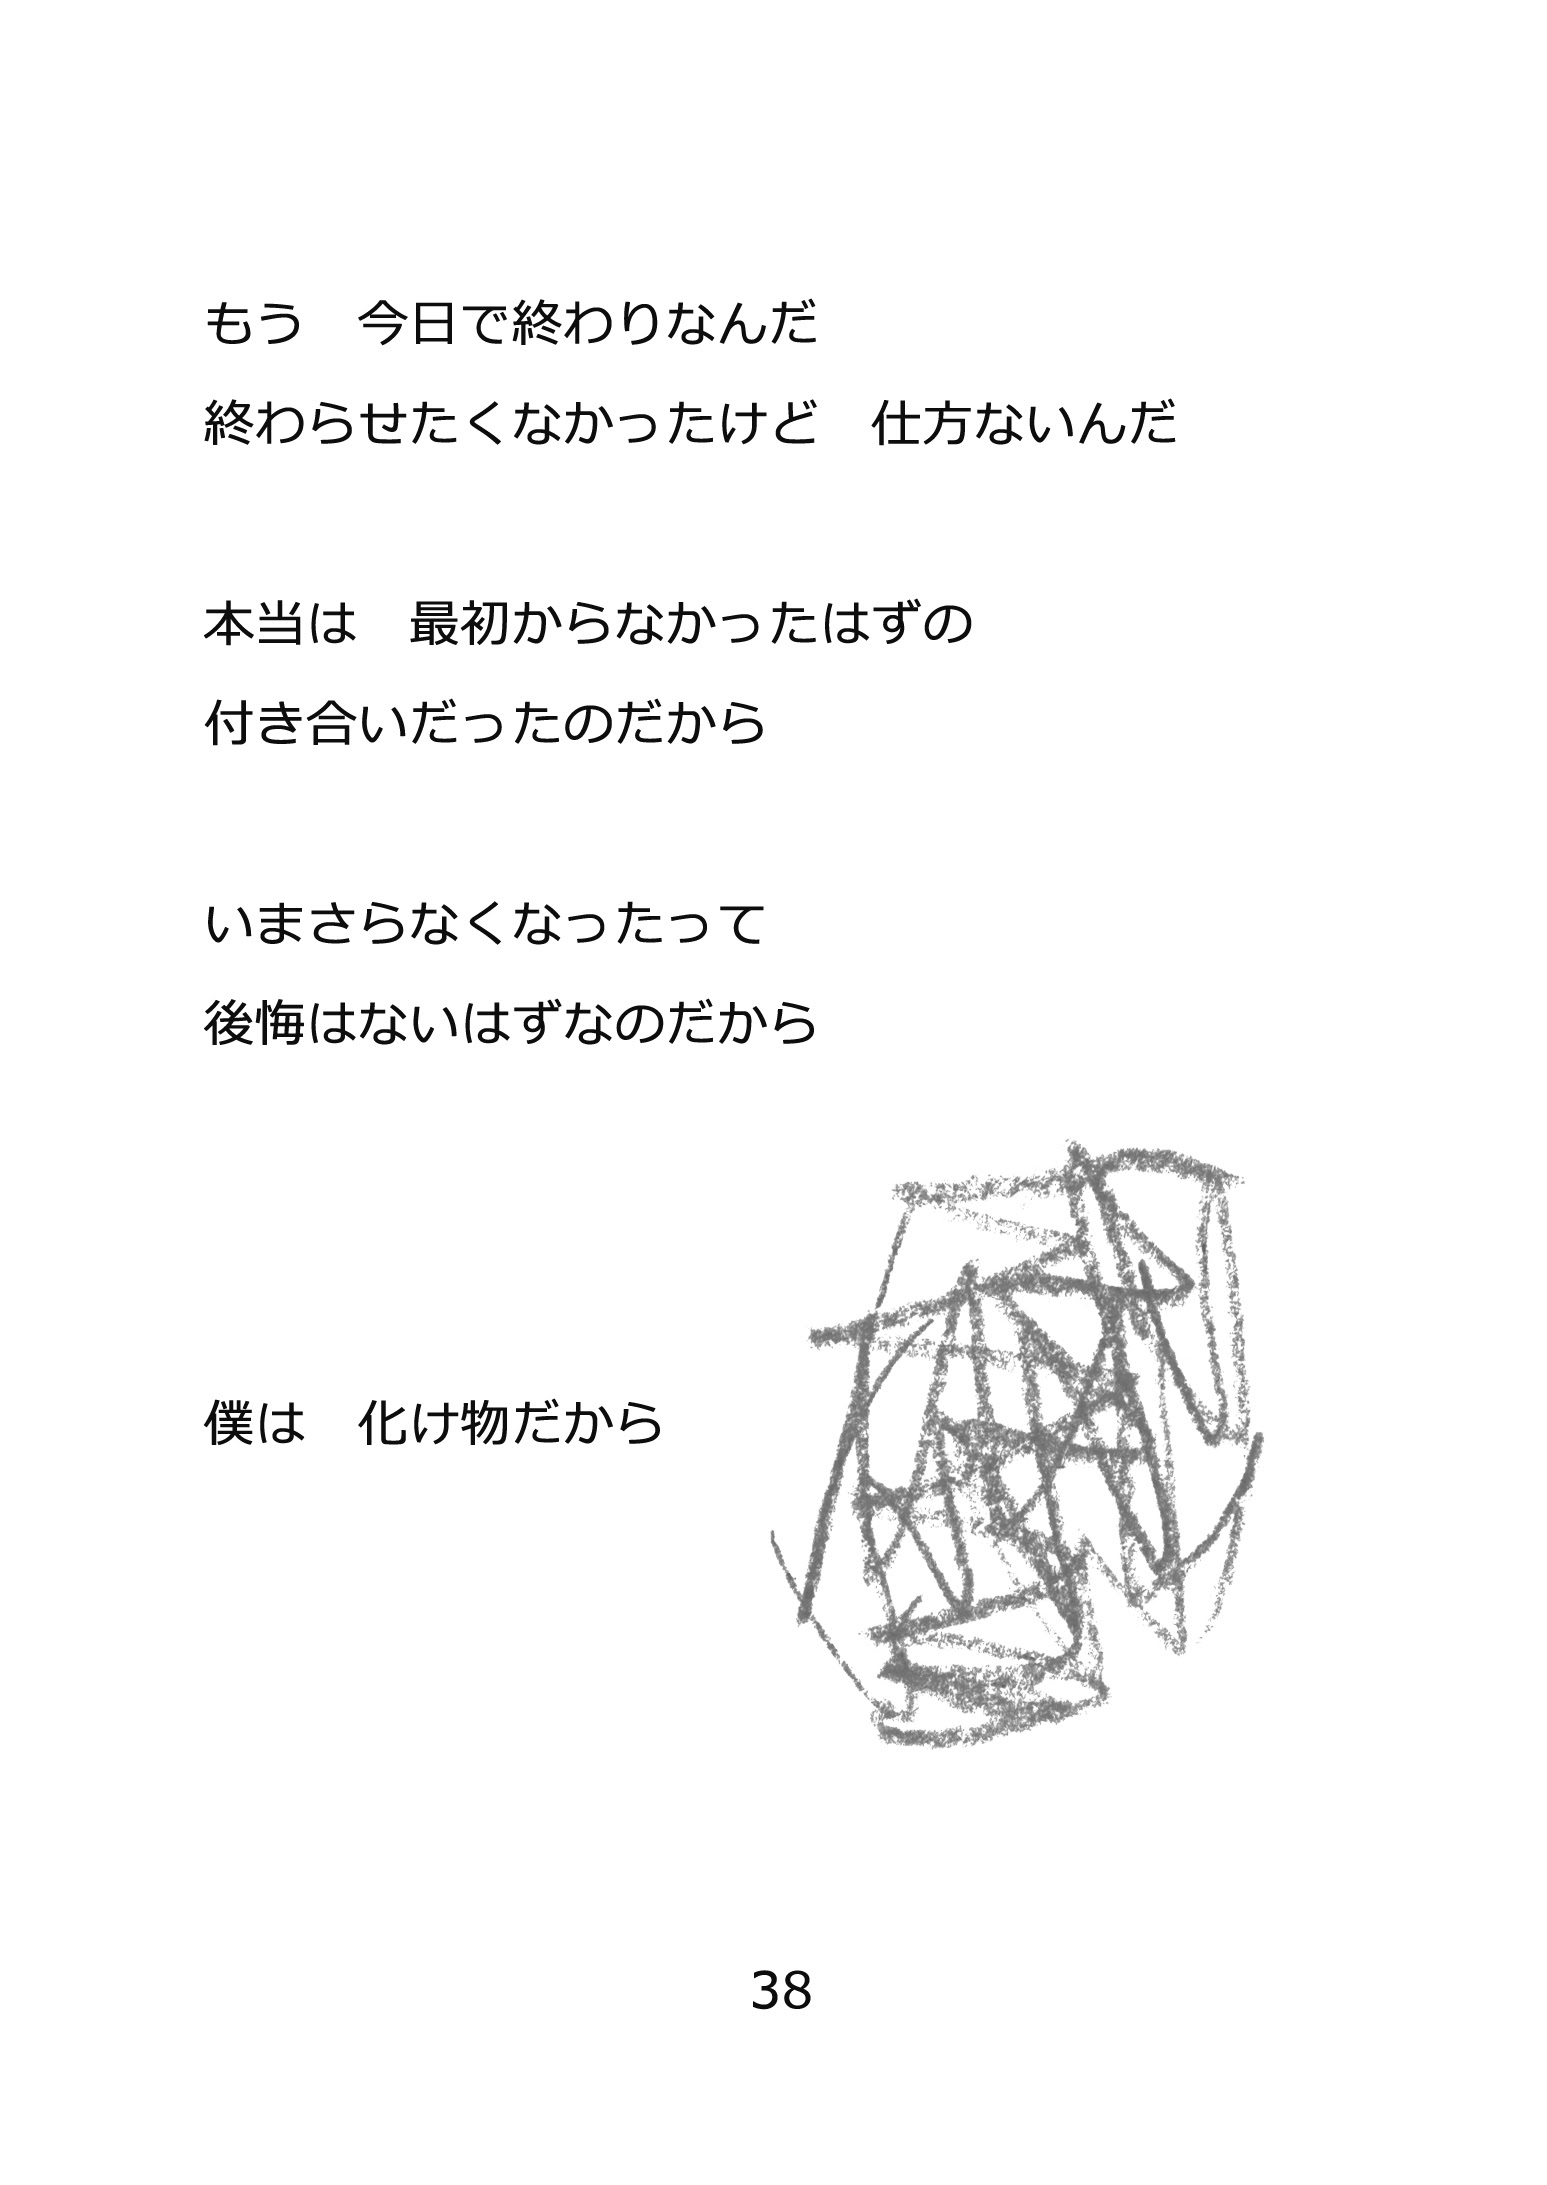 もう　今日で終わりなんだ
終わらせたくなかったけど　仕方ないんだ
本当は　最初からなかったはずの
付き合いだったのだから
いまさらなくなったって
後悔はないはずなのだから
僕は　化け物だから
38